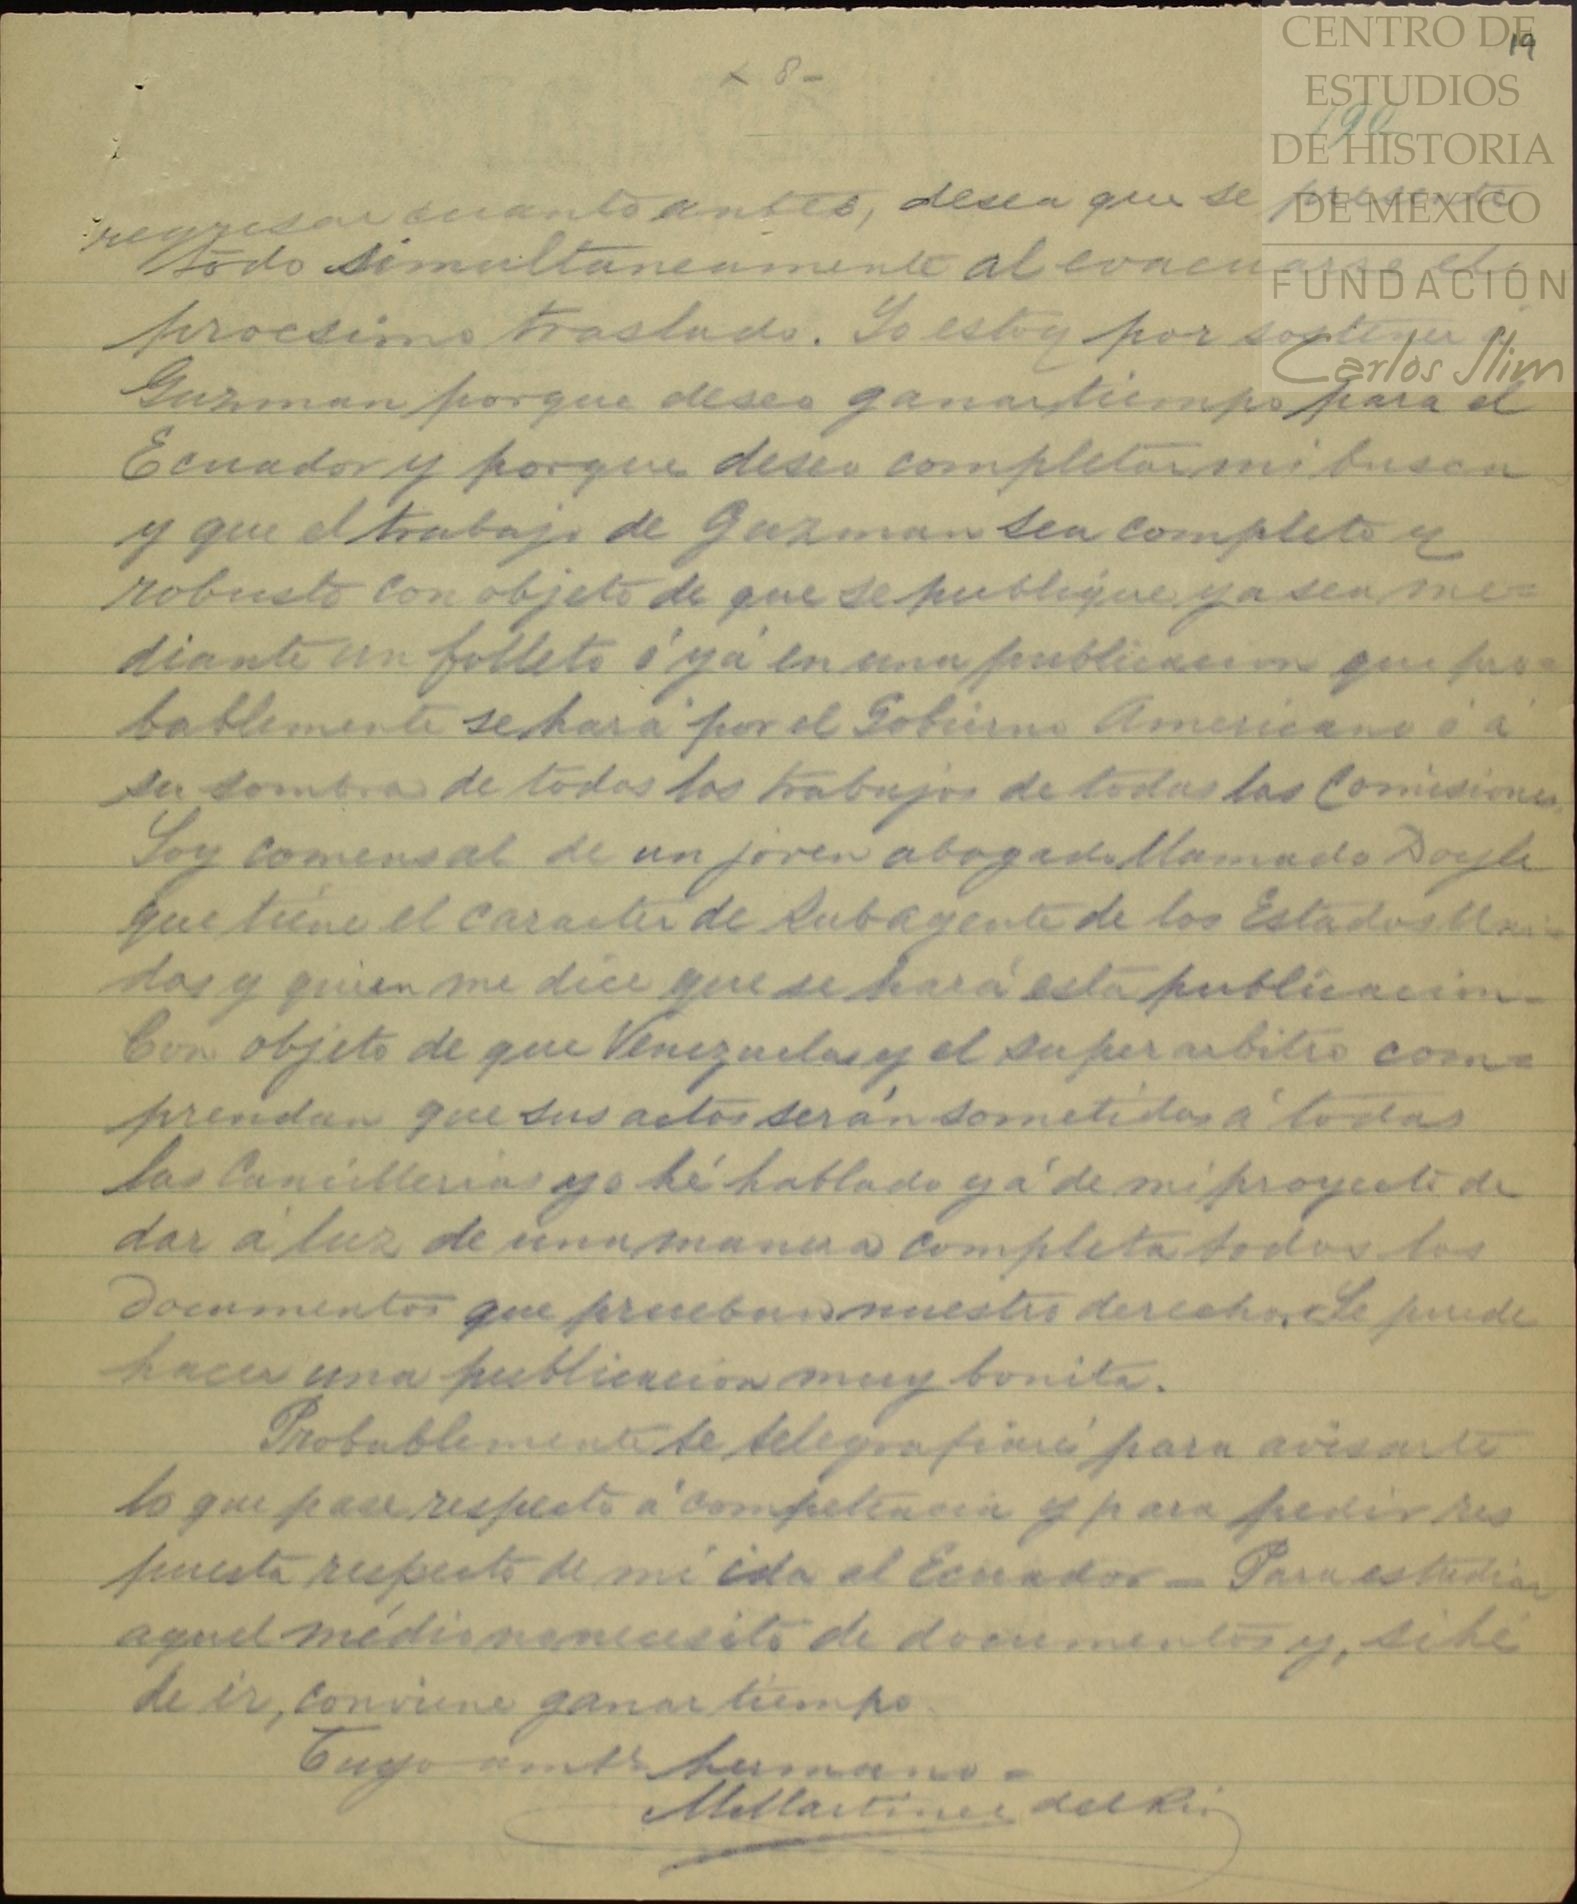 19
CENTRO DE
ESTUDIOS
DE HISTORIA
DE MEXICO
FUNDACIÓN
Carlos Slim
190
- 8 -
regresar cuanto antes, desea que se presente
todo simultaneamente al evacuarse el
procsimo traslado. Yo estoy por sostener á
Guzman porque deseo ganar tiempo para el
Ecuador y porque deseo completar mi busca
y que el trabajo de Guzman sea completo y
robusto con objeto de que se publique ya sea me=
diante un folleto ó yá en una publicacion que pro=
bablemente se hará por el Gobierno Americano ó á
su sombra de todos los trabajos de todas las Comisiones.
Soy comensal de un joven abogado llamado Doyle
que tiene el caracter de Subagente de los Estados Uni-
dos y quien me dice que se hará esta publicacion-
Con objeto de que Venezuela y el superarbitro com=
prendan que sus actos serán sometidos á todas
las Cancillerias yo hé hablado yá de mi proyecto de
dar á luz de una manera completa todos los
documentos que prueban nuestro derecho. Se puede
hacer una publicacion muy bonita.
Probablemente te telegrafiaré para avisarte
lo que pase respecto á competencia y para pedir res
puesta respecto de mi ida al Ecuador - Para estudiar
aquel médio no necesito de documentos y, si hé
de ir, conviene ganar tiempo.
Tuyo amte hermano -
M Martinez del Rio